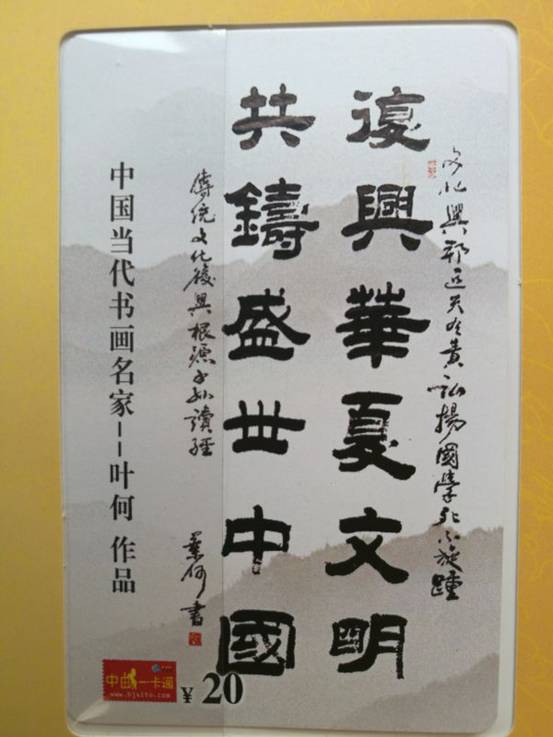 文化興邦匹夫有責 弘揚國學死不旋踵
復興華夏文明
共鑄盛世中國
傳統文化復興根源子孫讀經
葉何書
中国当代书画名家--叶何 作品
中邮一卡通
www.bjsito.com
¥ 20